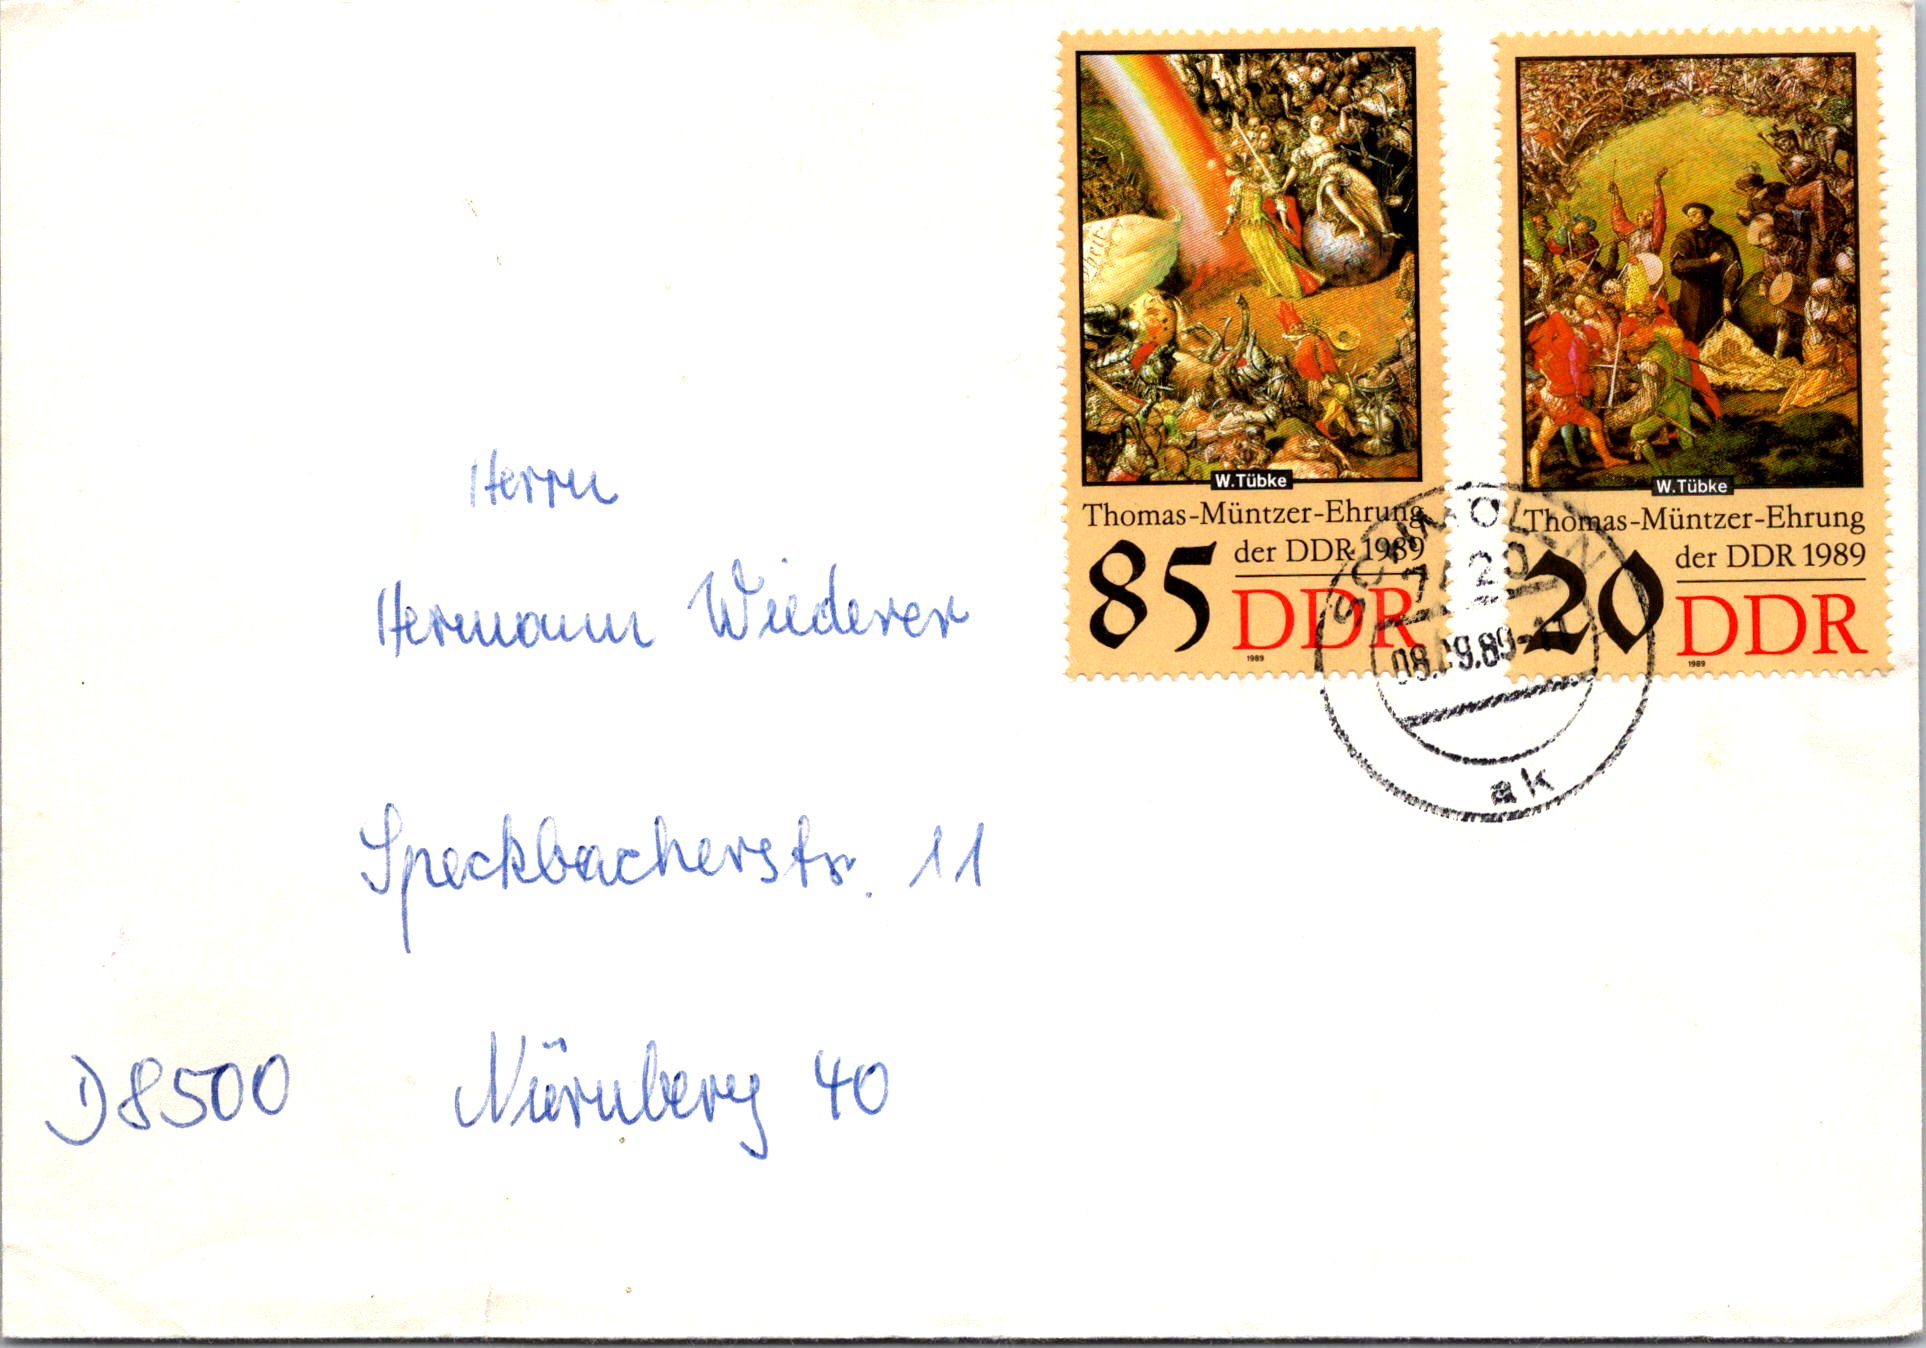 W.Tübke
Thomas-Müntzer-Ehrung
der DDR 1989
85 DDR
1989
W.Tübke
Thomas-Müntzer-Ehrung
der DDR 1989
20 DDR
1989
SCHMÖLLN
7420
08.09.89-11
ak
Herrn
Hermann Wiederer
Speckbacherstr. 11
D 8500 Nürnberg 40